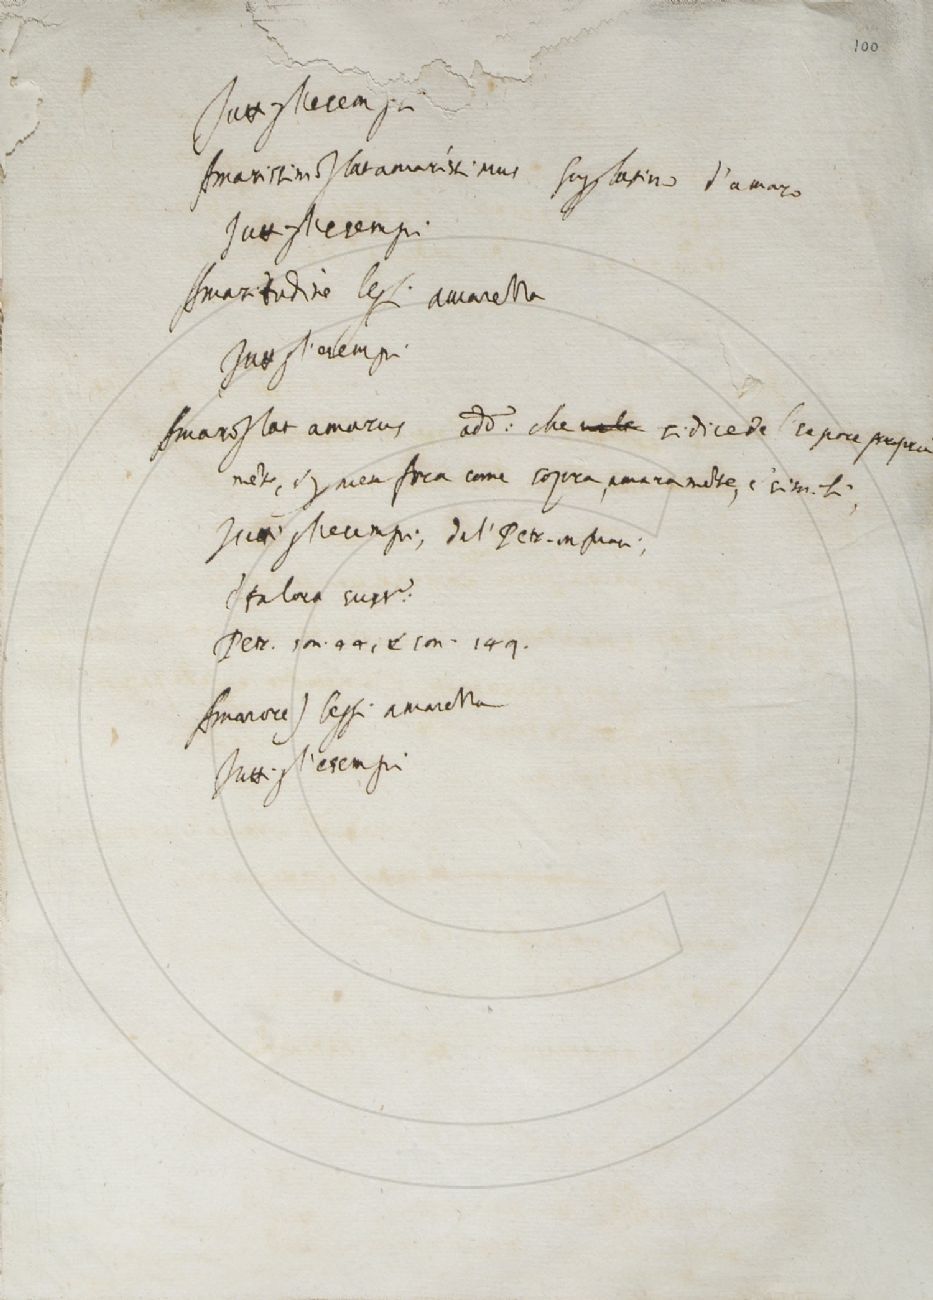 100
Tutti gli esempi
Amarissimo) lat amarissimus superlativo d'amaro
Tutti gli esempi
Amaritudine leggi amarezza
Tutti gl'esempi
Amaro) lat amarus add: che vale si dice del sapore propria
mẽte, e p metafora come sopra, amaramẽte, e simili,
Tutti gli esempi, dal Petr. in fuori,
e talora sust:
Petr. son. 44, & son. 149.
Amarore) leggi amarezza
Tutti gl'esempi